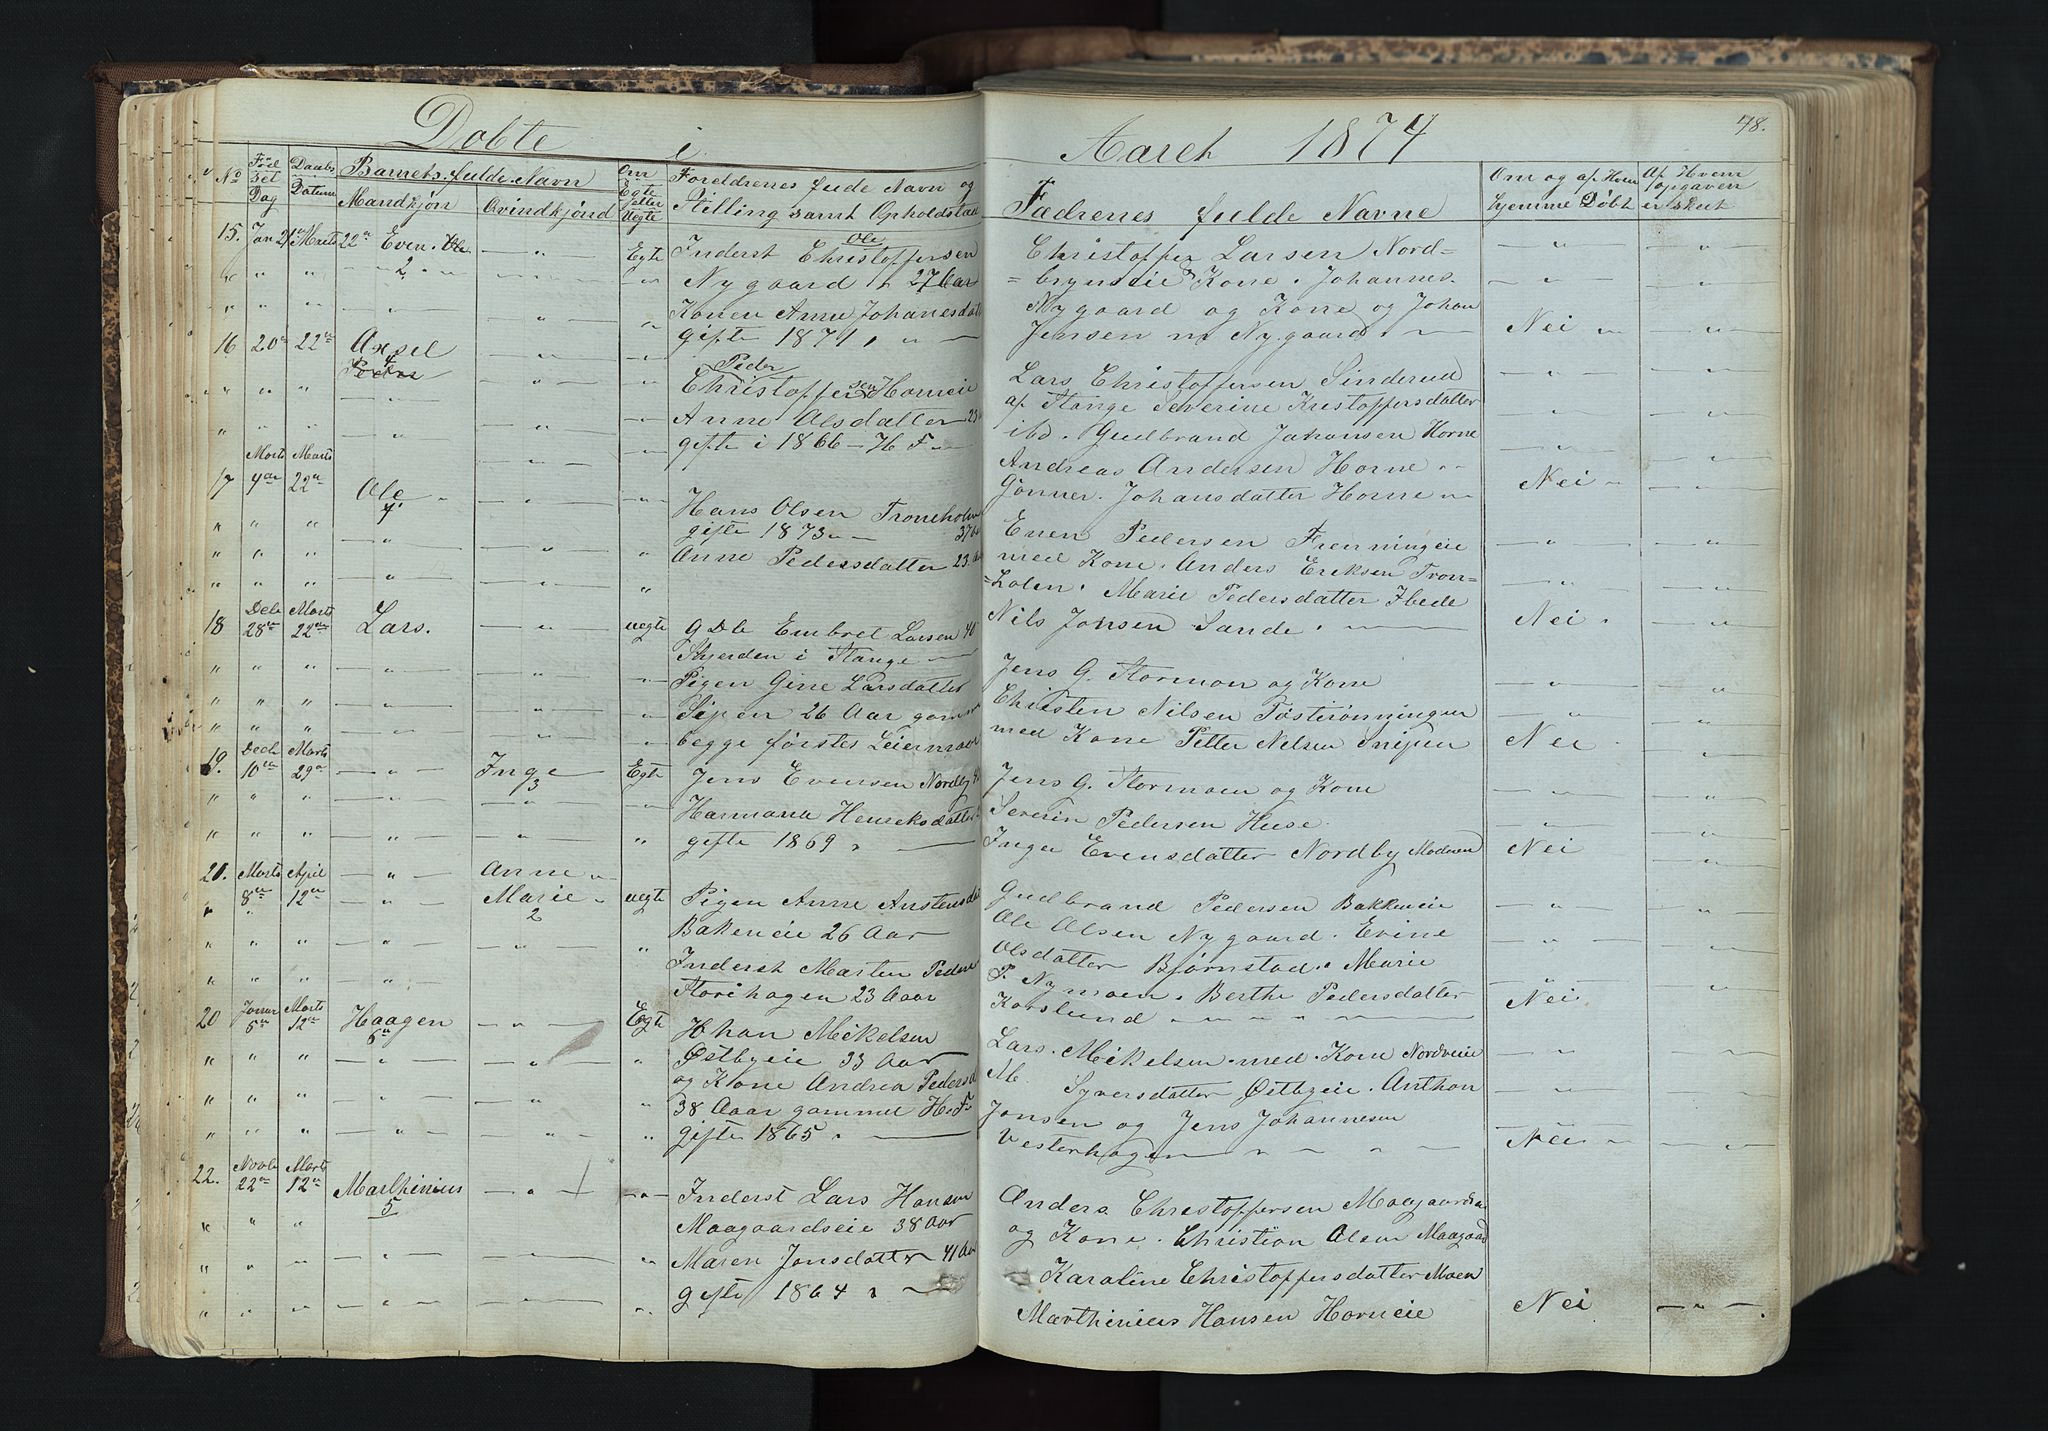 Døbte i Aaret 1874
48.
No Født Dag Daabs Datum Barnets fulde Navn Mandkjøn Qvindkjønd Om Egte eller Uegte Foreldrenes fude Navn og Stilling samt Opholdsted Fadrenes fulde Navne Om og af Hvem hjemme Døbt Af Hvem opgaven er skeet
15. Jan 21 Marts 22 Even Ole 2 Egte Inderst Ole Christoffersen
Nygaard 27 Aar
Konen Anne Johanesdatter
gifte 1871
Christoffer Larsen Nord-
=brynseie Kone. Johannes.
Nygaard og Kone og Johan
Jensen Nygaard Nei
16 20 22 Axsel 4
Peder
Christoffersen Horneie
Anne Olsdatter
gifte i 1866 H F
Lars Christoffersen Sinderud
af Stange Severine Krestoffersdatter
ibd. Gudbrand Johansen Horne
Andreas Andersen Horne
Gønner. Johansdatter Horne Nei
17 Marts Marts 22 Ole
Hans Olsen Troneholen
gifte 1873 37
Anne Pedersdatter 23.
Even Pedersen Frenningeie
med Kone. Anders Eriksen Tron-
=holen. Marie Pedersdatter Ibede
Nils Jonsen Sande. Nei
18 Decb 28 Marts 22 Lars. uegte Embret Larsen 40
Skjerden i Stange
Pigen Gine Larsdatter
Sipen 26 Aar gammel
begge førstes Leiermaal
Jens G. Stormoen og Kone
Christen Nilsen Tøsterønningen
med Kone Petter Nelsen Snipen Nei
19. Decb 10 Marts 29 Inge 3 Egte Jens Evensen Nordby
Harmana Henreksdatter
gifte 1869
Jens G. Stormoen og Kone
Severin Pedersen Huse.
Inger Evensdatter Nordby Moderen Nei
20. Marts 8 April 12 Anne
Marie 2 uegte Pigen Anne Austensdat
Bakeneie 26 Aar
Inderst Marten Peders
Storihagen 23 Aar
Gudbrand Pedersen Bakkeneie
Ole Olsen Nygaard. Evine
Olsdatter Bjørnstad. Marie
P. Nymoen. Berthe Pedersdatter
Korslund Nei
20 Januar 5 Marts 12 Haagen Egte Johan Mikelsen
Østbyeie 33 Aar
og Kone Andrea Pedersd
38 Aar gammel H. F
gifte 1865.
Lars. Mikelsen. med. Kone Nordveie
M. Syversdatter Østbyeie. Anthon
Jonsen og Jens Johannesen
Vesterhagen Nei
22. Novb 22 Marts 12 Marthinius 5 Inderst Lars Hansen
Maagaardseie 38 Aar
Maren Jonsdatter 41 Aar
gifte 1864
Anders Christoffersen Maagaards
og Kone. Christian Olsen Maagaard
Karoline Christoffersdatter Moen
Marthinius Hansen Horneie Nei